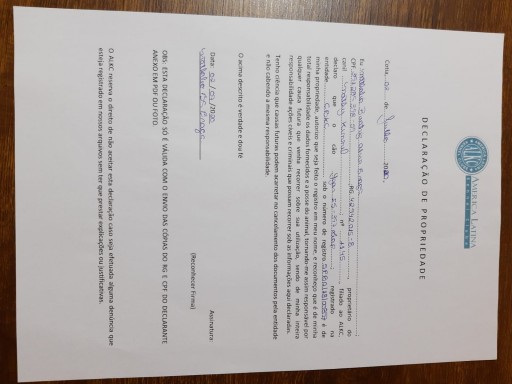 AMÉRICA LATINA
alkc
DECLARAÇÃO DE PROPRIEDADE
Cotia, 02 de de 2020.
Eu
CPF RG proprietário do
canil nº filiado ao ALKC,
declaro que o cão registrado na
entidade sob o número de registro é de
minha propriedade, autorizo que seja feito o registro em meu nome, e reconheço que é de minha
total responsabilidade os dados fornecidos e a posse do animal, tornando-me assim responsável por
qualquer causa futura que venha recorrer sobre sua utilização, sendo de minha inteira
responsabilidade ações cíveis e criminais que possam recorrer sob as informações aqui declaradas.
Tenho ciência que causas futuras podem acarretar no cancelamento dos documentos pela entidade
e não cabendo a mesma responsabilidade.
O acima descrito é verdade e dou fé
Data: 02/ /2020 Assinatura:
(Reconhecer Firma)
OBS: ESTA DECLARAÇÃO SÓ É VÁLIDA COM O ENVIO DAS CÓPIAS DO RG E CPF DO DECLARANTE
ANEXO EM PDF OU FOTO.
O ALKC reserva o direito de não aceitar esta declaração caso seja efetuada alguma denúncia que
esteja registrado em nossos arquivos sem ter que prestar explicações ou justificativas.